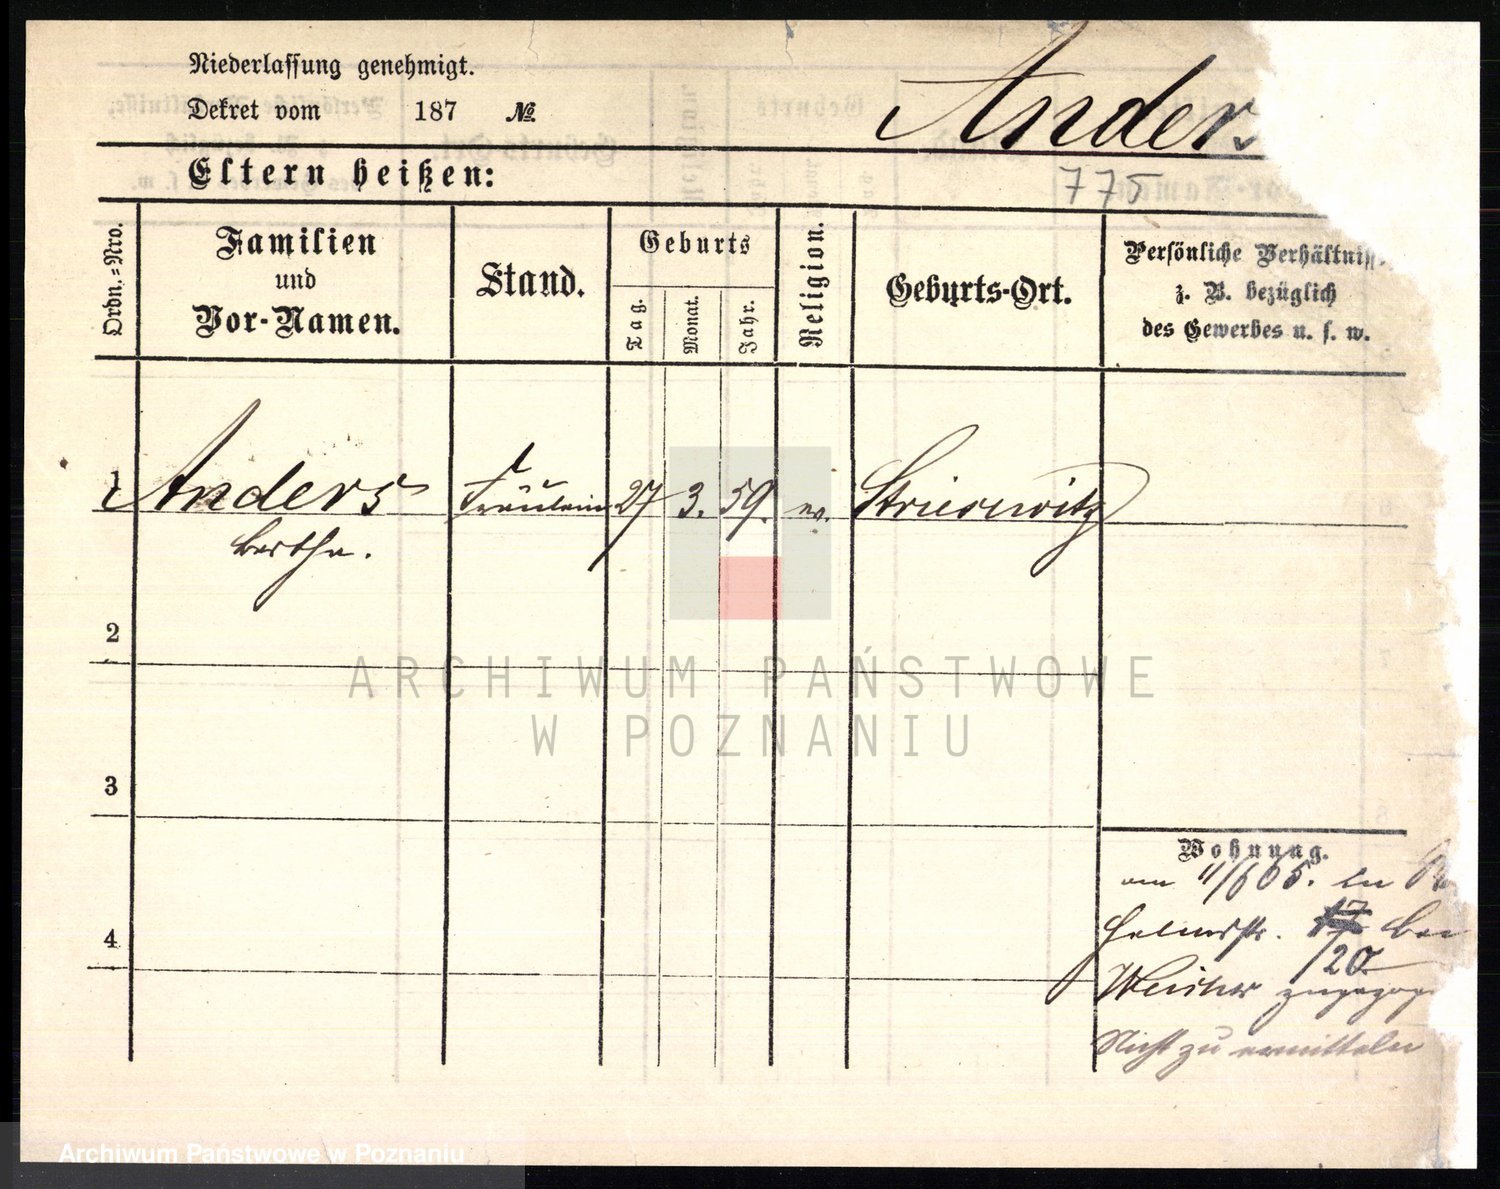 Niederlassung genehmigt.
Dekret vom 187 №
Anders
775
Eltern heißen:
Ordn.=Nro.
Familien
und
Vor-Namen.
Stand.
Geburts
Tag.
Monat.
Jahr.
Religion.
Geburts-Ort.
Persönliche Verhältniss
z. B. bezüglich
des Gewerbes u. s. w.
1 Anders Fräulein 27 3. 59. ev. Striesewitz
Bertha.
2
3
4
Wohnung.
am 11/6 05. in
17 bei
20.
zugezogen
Nicht zu ermitteln
ARCHIWUM PAŃSTWOWE
W POZNANIU
Archiwum Państwowe w Poznaniu